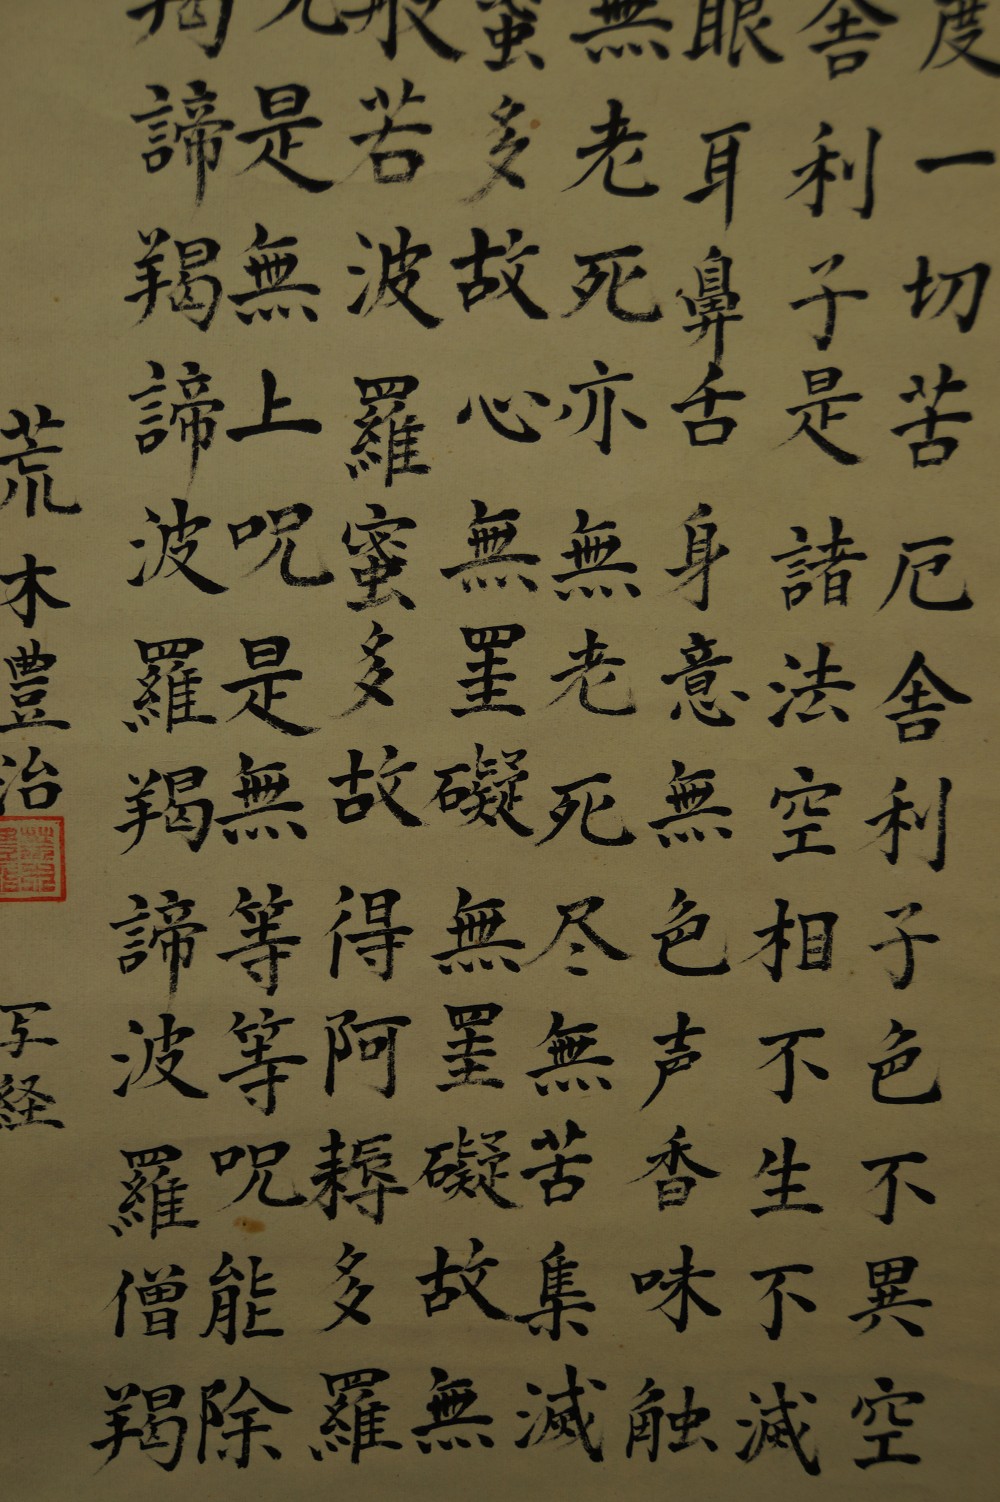 度一切苦厄舎利子色不異空
舎利子是諸法空相不生不滅
眼耳鼻舌身意無色声香味触
無老死亦無老死尽無苦集滅
蜜多故心無罣礙無罣礙故無
般若波羅蜜多故得阿耨多羅
呪是無上呪是無等等呪能除
羯諦羯諦波羅羯諦波羅僧羯
荒木豊治 写経